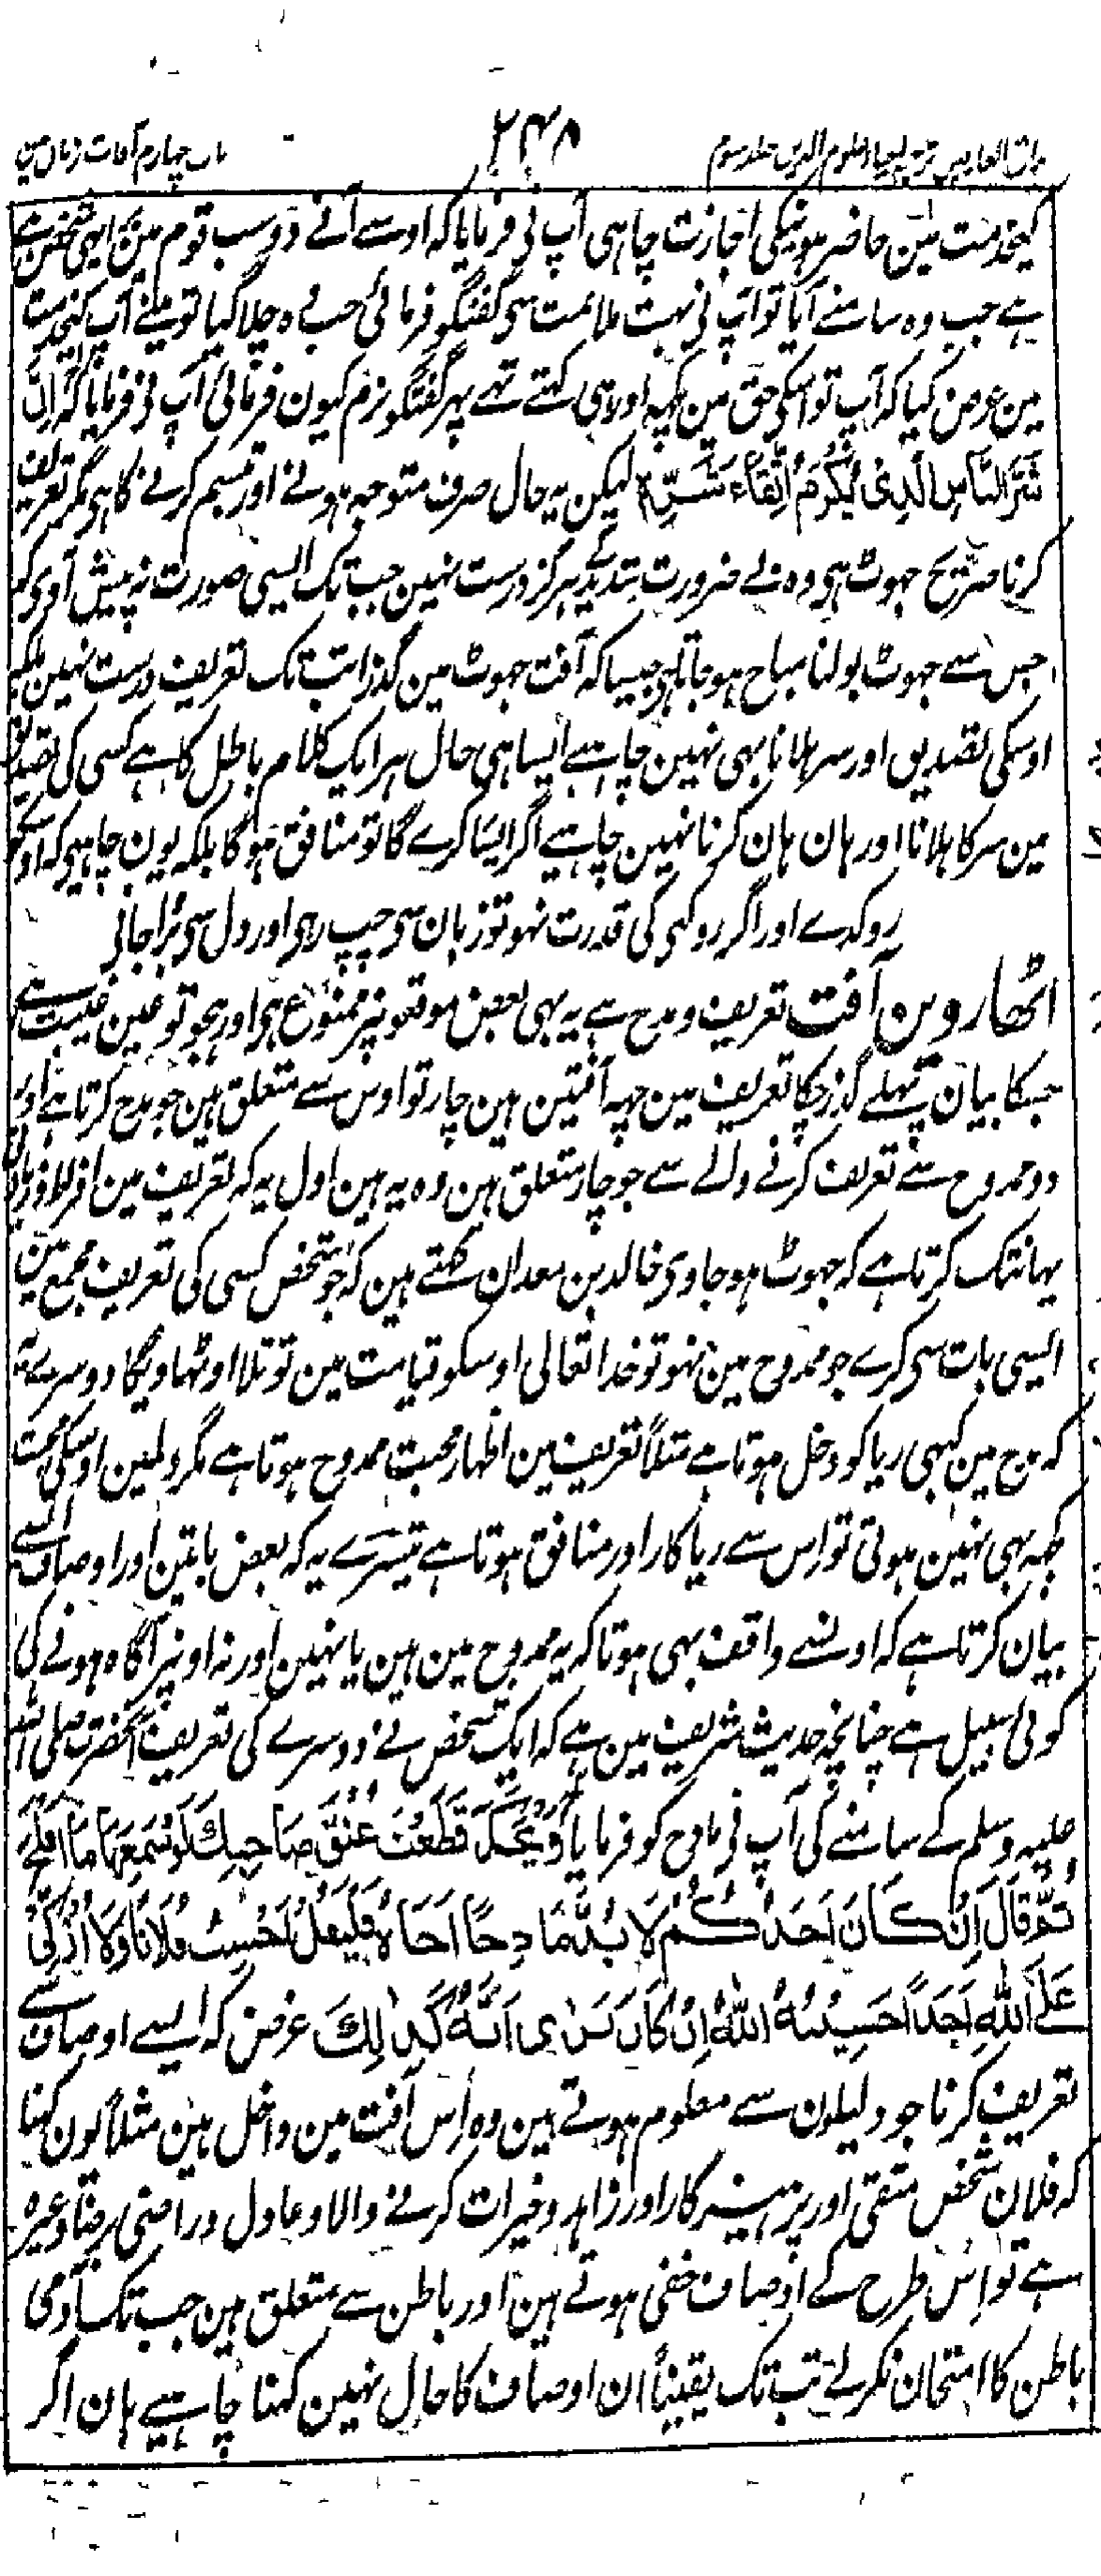 مذاق العارفین ترجمہ احیاء علوم الدین جلد سوم ۲۴۸ باب چہارم آفات زبان مین
کیخدمت مین حاضر ہونیکی اجازت چاہی آپ نی فرمایا کہ اوسے آنے دو سب قوم مین ایہی شخص ہے
ہے جب وہ سامنے آیا تو آپ نی بہت ملائمت سی گفتگو فرمائی جب وہ چلا گیا تو مینے آپ کیخدمت
مین عرض کیا کہ آپ تو اسکی حق مین کچہ اور ہی کہتے تہے پہر گفتگو نرم کیون فرمائی آپ نی فرمایا کہ اِنَّ
شَرَّ النَّاسِ الَّذِیْ یُکْرَمُ اِتِّقَاءَ شَرِّہٖ لیکن یہ حال صرف متوجہ ہونے اور تبسم کرنے کا ہی مگر تعریف
کرنا صریح جہوٹ ہی وہ بے ضرورت شدید کے ہرگز درست نہین جب تک ایسی صورت نہ پیش آوی کہ
جس سے جہوٹ بولنا مباح ہو جاتا ہی جیسا کہ آفت جہوٹ مین گذرا تب تک تعریف درست نہین بلکہ
اوسکی تصدیق اور سر ہلانا بہی نہین چاہیے ایسا ہی حال ہر ایک کلام باطل کا ہے کسی کی تصدیق
مین سر کا ہلانا اور ہان ہان کرنا نہین چاہیے اگر ایسا کرے گا تو منافق ہو گا بلکہ یون چاہیی کہ اوسکو
روکدے اور اگر روکنی کی قدرت نہو تو زبان سی چپ رہی اور دل سی بُرا جانی
اٹھاروین آفت تعریف و مدح ہے یہ بہی بعض موقعونپر ممنوع ہی اور ہجو تو عین غیبت ہے
جسکا بیان پہلے گذر چکا تعریف مین چہہ آفتین ہین چار تو اوس سے متعلق ہین جو مدح کرتا ہے اور
دو ممدوح سے تعریف کرنے والے سے جو چار متعلق ہین وہ یہ ہین اول یہ کہ تعریف مین افراط و زیادتی
یہانتک کرتا ہے کہ جہوٹ ہو جاوی خالد بن معدان کہتے ہین کہ جو شخص کسی کی تعریف مجمع مین
ایسی بات سی کرے جو ممدوح مین نہو تو خدا تعالی اوسکو قیامت مین توتلا اوٹہاویگا دوسرے یہ
کہ مدح مین کبہی ریا کو دخل ہوتا ہے مثلاً تعریف مین اظہار محبت ممدوح ہوتا ہے مگر دلمین اوسکی محبت
کچہ بہی نہین ہوتی تو اس سے ریاکار اور منافق ہوتا ہے تیسرے یہ کہ بعض باتین اور اوصاف ایسے
بیان کرتا ہے کہ اونسے واقف بہی ہوتا کہ یہ ممدوح مین ہین یا نہین اور نہ اونپر آگاہ ہونے کی
کوئی سبیل ہے چنانچہ حدیث شریف مین ہے کہ ایک شخص نے دوسرے کی تعریف آنحضرت صلی اللہ
علیہ وسلم کے سامنے کی آپ نی مادح کو فرمایا وَیْحَکَ قَطَعْتَ عُنُقَ صَاحِبِکَ لَوْ سَمِعَهَا مَا اَفْلَحَ
ثُمَّ قَالَ اِنْ کَانَ اَحَدُکُمْ لَا بُدَّ مَادِحًا اَخَاهُ فَلْیَقُلْ اَحْسِبُ فُلَانًا وَلَا اُزَکِّی
عَلَی اللهِ اَحَدًا حَسِیْبُهُ اللهُ اِنْ کَانَ یَرٰی اَنَّهُ کَذٰلِکَ غرض کہ ایسے اوصاف سے
تعریف کرنا جو دلیلون سے معلوم ہوتے ہین وہ اِس آفت مین داخل ہین مثلاً یون کہنا
کہ فلان شخص متقی اور پرہیزگار اور زاہد و خیرات کرنے والا و عادل و راضی برضا وغیرہ
ہے تو اِس طرح کے اوصاف خفی ہوتے ہین اور باطن سے متعلق ہین جب تک آدمی
باطن کا امتحان نکر لے تب تک یقیناً ان اوصاف کا حال نہین کہنا چاہیے ہان اگر